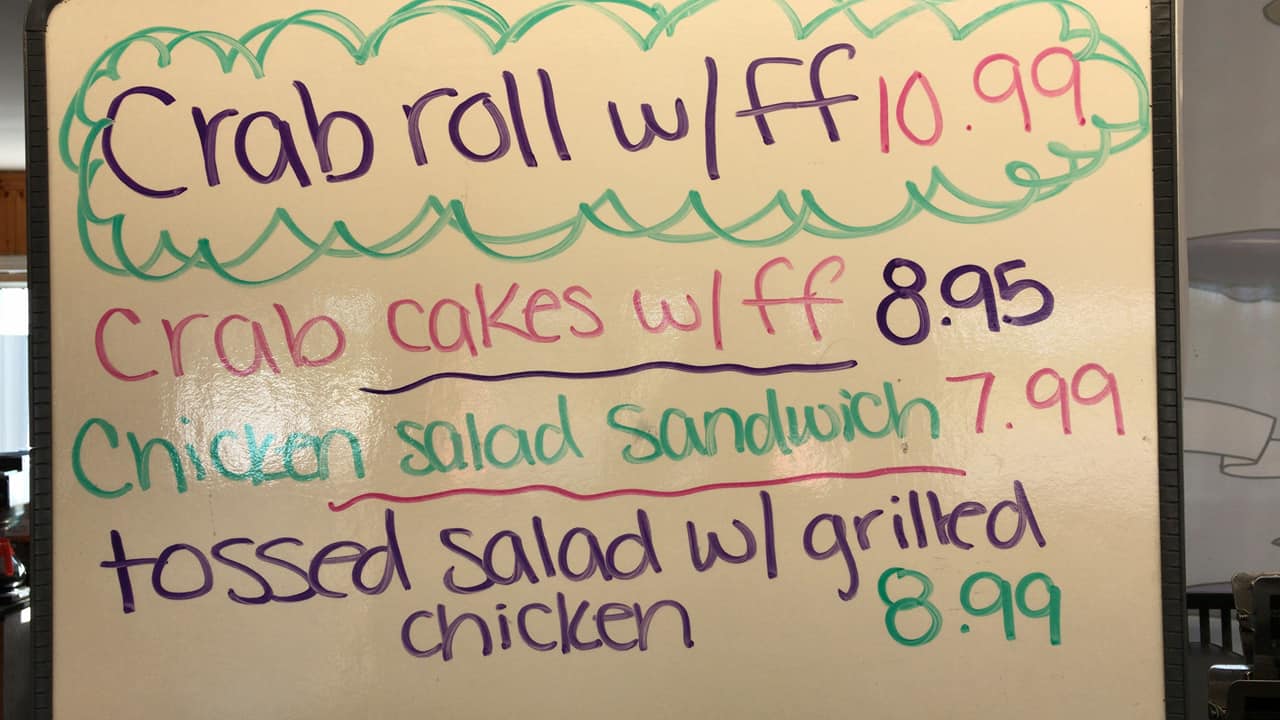 Crab roll w/ff 10.99
Crab cakes w/ff 8.95
Chicken salad Sandwich 7.99
tossed salad w/ grilled
chicken 8.99